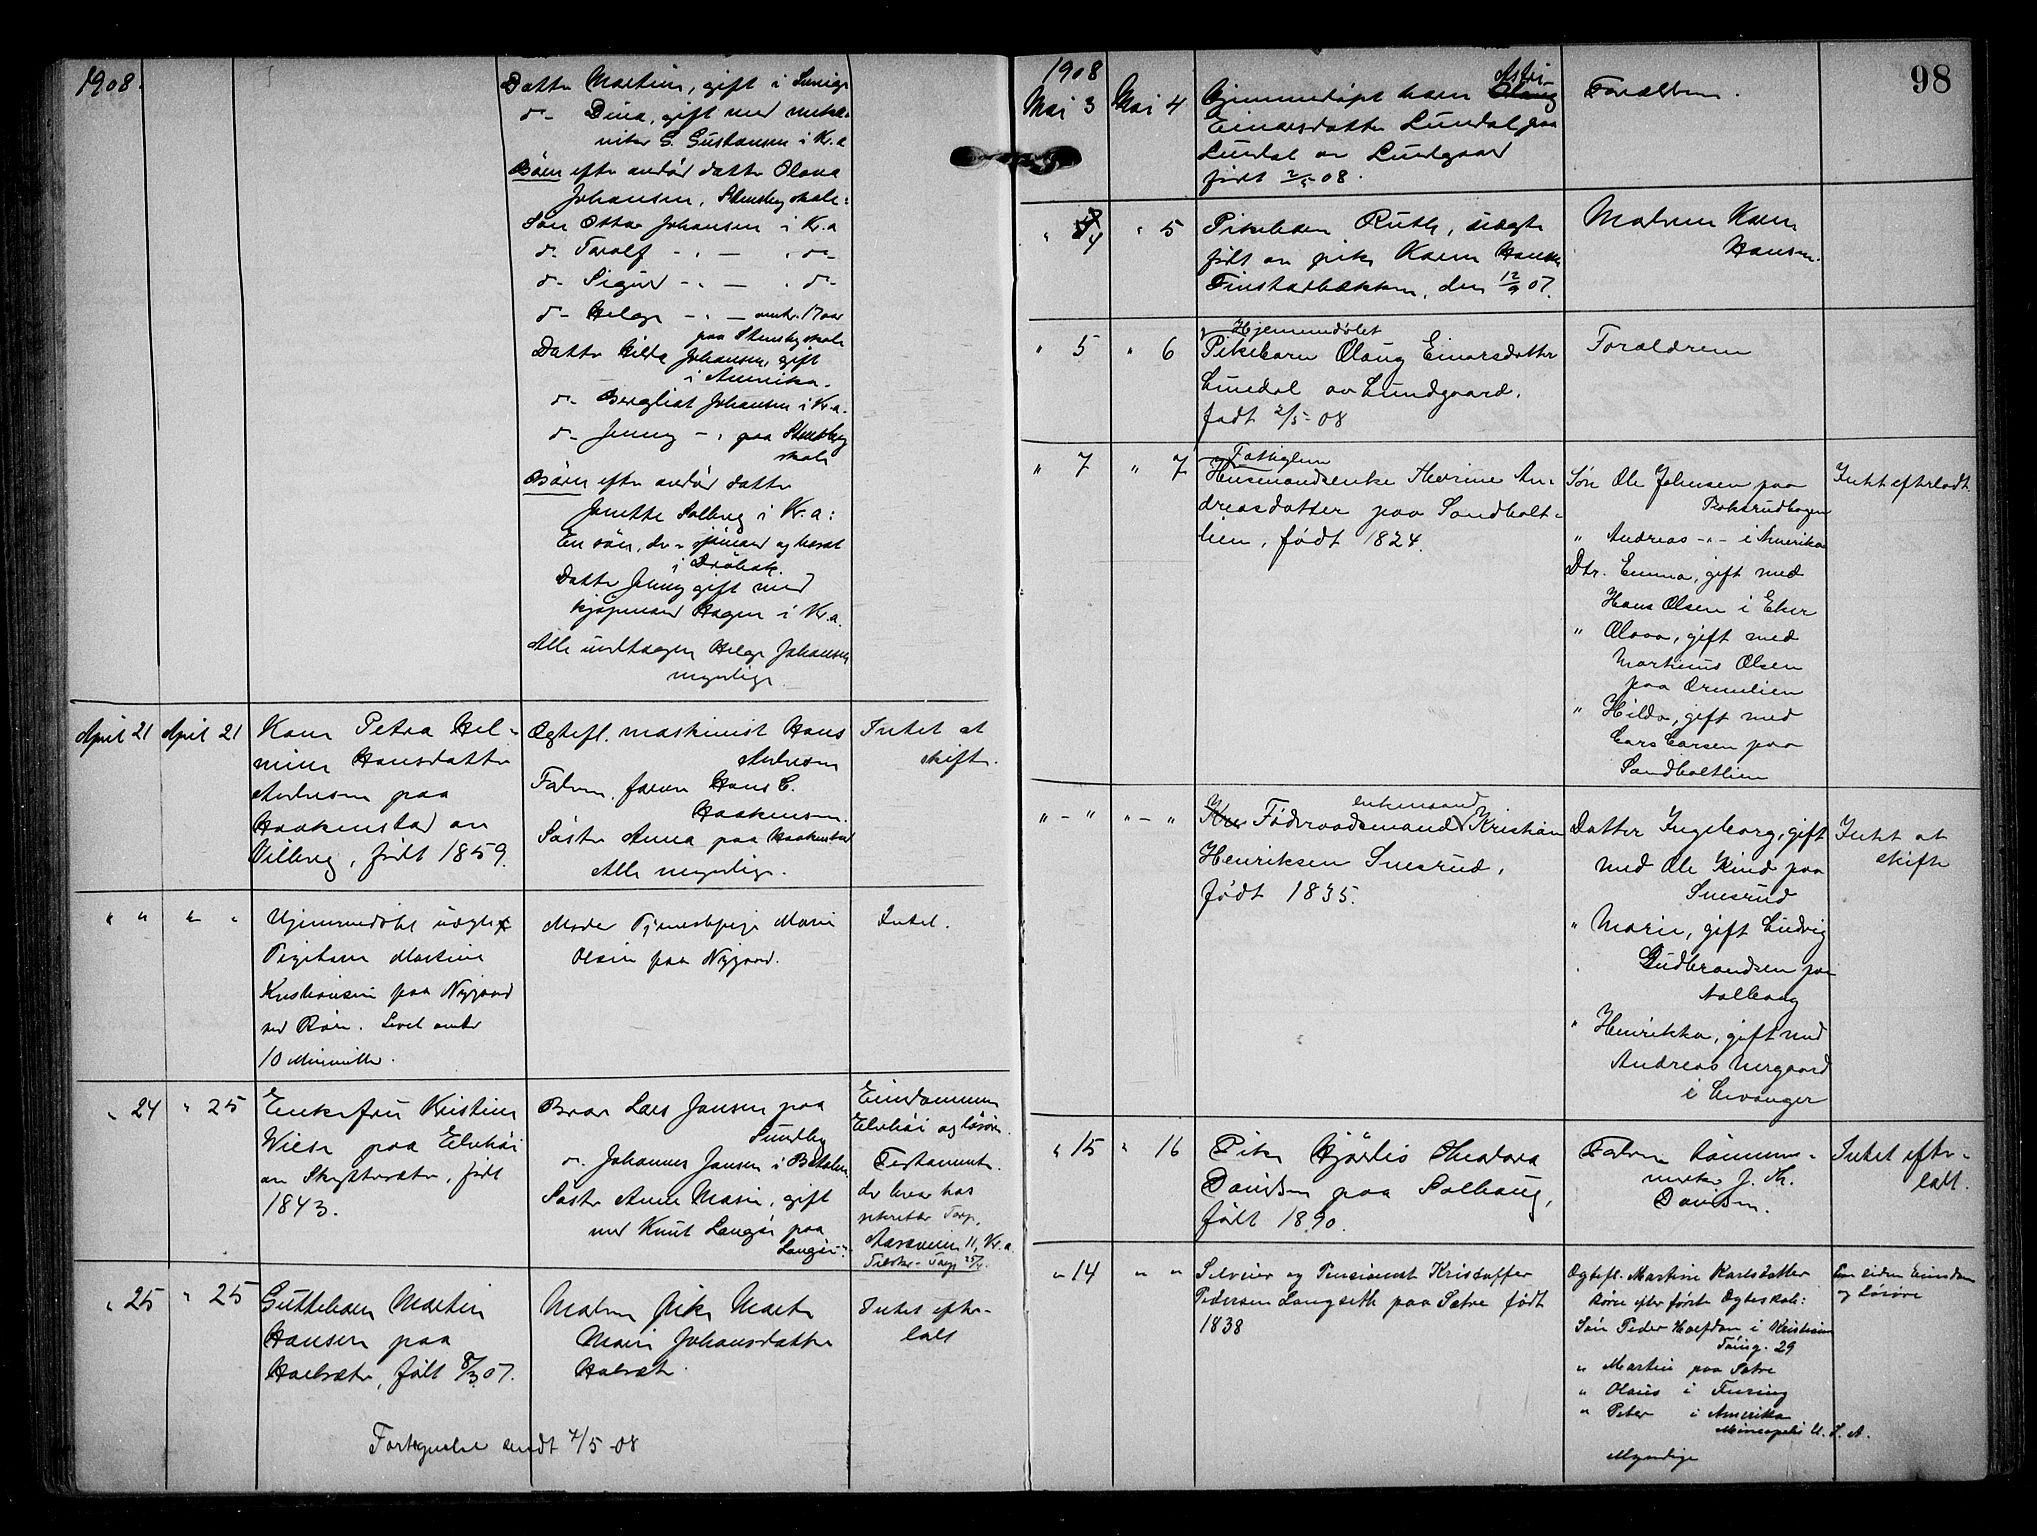 1908.
Datter Martine, gift i
d- Dina, gift med meka-
niker G. Gustavsen i Kr.a
Børn efter avdød datter Olava
Johansen, Stensby skole:
Søn Ottar Johansen i Kr.a
d- Toralf - " - " d-
d- Sigurd - " - " d-
d- Helge - " - omkr. 17 aar
paa Stensby skole
Datter Hilda Johansen, gift
i Amerika.
d- Bergliot Johansen i Kr.a.
d- Jenny - " paa Stensby
skole
Børn efter avdød datter
Janette Solberg i Kr.a:
En søn, der er sjømand og bosat
i Drøbak.
Datter Jenny gift med
kjøpmand Hagen i Kr.a.
Alle undtagen Helge Johansen
myndige.
April 21 April 21
Kone Petra Hel-
mine Hansdatter
Andresen paa
Haakenstad av
Vilberg, født 1859.
Egtefl. maskinist Hans
Andresen
Faren Hans C.
Haakensen.
Søster Anna paa Haakenstad
Alle myndige.
Intet at
skifte.
" " " "
Hjemmedøbt uægte
Pigebarn Martine
Kristiansen paa Nygaard
ved Råen. Levet omtr
10 Minutter.
Moder Tjenestepige Marie
Olsen paa Nygaard.
Intet.
" 24 " 25
Enkefru Kristine
Wiese paa Elvehøi
av Skytteræter, født
1843.
Bror Lars Jansen paa
Sundby
d. Johannes Jansen i
Søster Anne Marie, gift
med Knut Langøi paa
Langøi.
Eiendommen
Elvehøi og løsøre.
Testamente.
der beror hos
sekretær Torp,
11, Kr.a.
" 25 " 25
Guttebarn Martin
Hansen paa
født 8/3 07.
Moren pike Marte
Marie Johansdatter
Intet efter-
latt
Fortegnelse sendt 4/5 08
98
1908
Mai 3 Mai 4
Hjemmedøpt barn Astri
Olaug
Einarsdatter Lundal paa
Lundal av Lundgaard
født 2/5 08.
Forældrene.
" 4 " 5
Pikebarn Ruth, uægte
født av pike Karen Hansen
Finstadbækken, den 12/9 07.
Moren Karen
Hansen.
" 5 " 6
Hjemmedøbt
Pikebarn Olaug Einarsdatter
Lundal av Lundgaard.
født 2/5-08
Forældrene
" 7 " 7
Fattiglem
Husmandsenke Therine An-
dreasdatter paa Sandholt-
lien, født 1824.
Søn Ole Johnsen paa
Boksrudhagen
" Andreas -"- i Amerika
Dtr. Emma, gift med
Hans Olsen i Eker
" Olava, gift med
Martinus Olsen
paa Ormlien
" Hilda, gift med
Lars Larsen paa
Sandholtlien
Intet efterladt.
" - " " - "
enkemand
Føderaadsmand Kristian
Henriksen Snesrud,
født 1835.
Datter Ingeborg, gift
med Ole Kind paa
Snesrud
" Marie, gift Ludvig
Gudbrandsen paa
Solhaug
" Henrikka, gift med
Andreas Nergaard
i Levanger
Intet at
skifte
" 15 " 16
Pike Hjørdis Theodora
Davidsen paa Solhaug,
født 1890.
Faren tømmer-
merker J. Th.
Davidsen.
Intet efter-
latt.
" 14 " "
Selveier og Pensionist Kristoffer
Pedersen Langseth paa Sætre født
1838
Egtefl. Martine Karlsdatter
Børn efter første Egteskab:
Søn Peder Hoelsdon i Kristiania
29
" Martin paa Sætre
" Olaus i Furing
" Peter i Amerika
Mineapolis U. S. A.
Myndige
Eiendom
og Løsøre